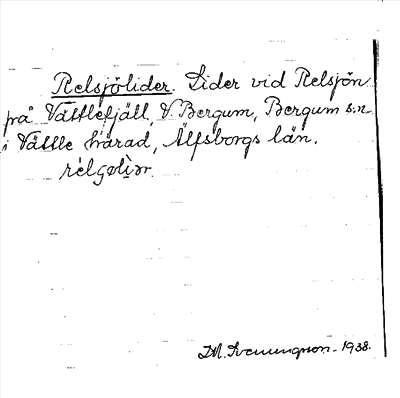 Relsjölider. Lider vid Relsjön
på Vättlefjäll, V. Bergum, Bergum s:n
i Vättle härad, Älfsborgs län.
rèlʃøliǝr.
1938.